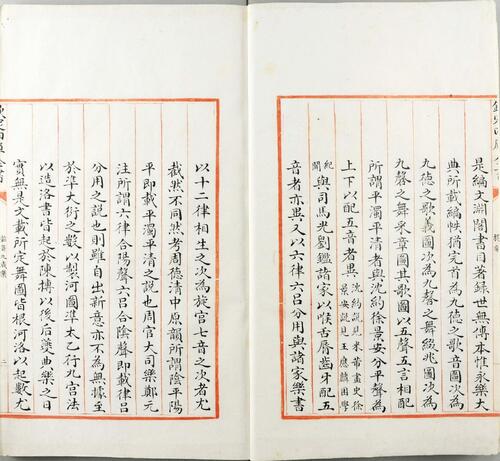 是編文淵閣書目著録世無傳本惟永樂大
典所載編帙猶完首為九德之歌音圖次為
九德之歌義圖次為九磬之舞綴兆圖次為
九磬之舞采章圖其歌圖以五聲五言相配
所謂平濁平清者與沈約徐景安分平聲為
上下以配五音者異
沈約説見米芾畫史徐
景安説見王應麟困學
紀聞
與司馬光劉鑑諸家以喉舌唇齒牙配五
音者亦異又以六律六吕分用與諸家樂書
以十二律相生之次為旋宫七音之次者尤
截然不同然考周德清中原韻所謂陰平陽
平即載平濁平清之說也周官大司樂鄭元
注所謂六律合陽聲六吕合陰聲即載律吕
分用之説也則雖自出新意亦不為無據至
於準大衍之數以製河圖準太乙行九宫法
以造洛書皆起於陳摶以後夔典樂之日
實無是文載所定舞圖皆根河洛以起數尤